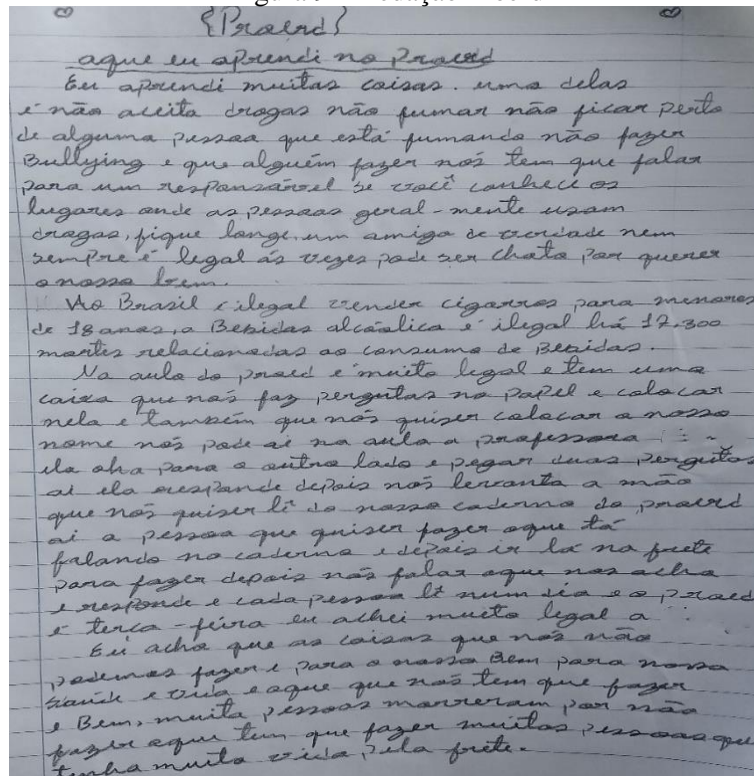 {Proerd}
aque eu aprendi no Proerd
Eu aprendi muitas coisas. uma delas
é não aceita drogas não fumar não ficar perto
de alguma pessoa que está fumando não fazer
Bullying e que alguém fazer nós tem que falar
para um responsável se você conhece os
lugares onde as pessoas geral-mente usam
drogas, fique longe, um amigo de verdade nem
sempre é legal ás vezes pode ser chato por querer
o nosso bem.
No Brasil é ilegal vender cigarros para menores
de 18 anos, a Bebidas alcoólica é ilegal há 17.300
mortes relacionadas ao consumo de Bebidas.
Na aula do proed é muito legal e tem uma
caixa que nós faz pergutas no papel e colocar
nela e também que nós quiser colocar o nosso
nome nós pode ai na aula a professora
ela olha para o outro lado e pegar duas pergutas
ai ela responde depois nós levanta a mão
que nós quiser lê do nosso caderno do proerd
ai a pessoa que quiser fazer oque tá
falando no caderno e depois ir lá na frete
para fazer depois nós falar oque nos acha
e responde e cada pessoa lê num dia e o proed
é terça-feira eu achei muito legal a
Eu acho que as coisas que nós não
podemos fazer e para o nosso Bem para nossa
saúde e vida e aque que nós tem que fazer
e Bem, muita pessoas morreram por não
fazer aque tem que fazer muitas pessoas que
tenha muita vida pela frete.